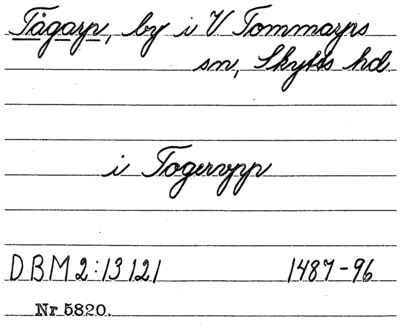 Tågarp, by i V Tommarps
sn, Skytts hd
i Togervpp
DBM2:13121 1487-96
Nr 5820.